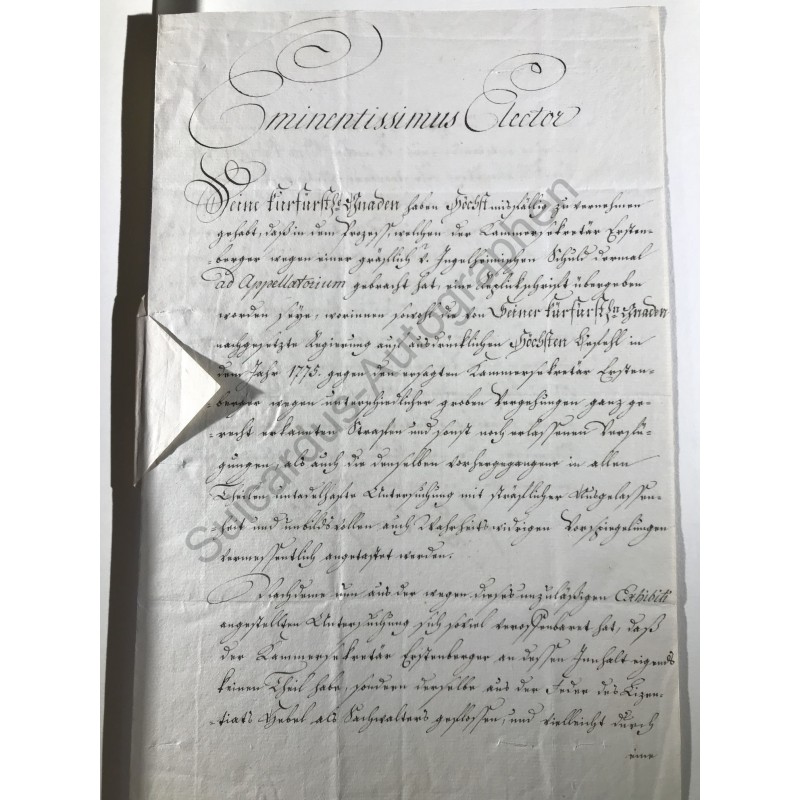 Eminentissimus Elector
Seine kurfürstl. Gnaden haben Höchst misfällig zu vernehmen
gehabt, daß in dem Prozess, welchen der Kammersekretär Ersten-
-berger wegen einer gräflich v. Ingelheimischen Schuld dermal
ad Appellatorium gebracht hat, eine Replikschrift übergeben
worden seye, worinnen sowohl die von Seiner kurfürstln. Gnaden
nachgesetzte Regierung auf ausdrücklichen Höchsten Befehl in
dem Jahr 1775. gegen den ersagten Kammersekretär Ersten-
-berger wegen unterschiedlicher groben Vergehungen ganz ge-
-recht erkannten Straffen und sonst noch erlassenen Verfü-
-gungen, als auch die denselben vorhergegangene in allen
Theilen untadelhafte Untersuchung mit sträflicher Ausgelassen-
-heit und unbildvollen auch Wahrheits widrigen Vorspiegelungen
vermessentlich angetastet werden.
Nachdeme nun aus der wegen dieses unzuläßigen Exhibiti
angestellten Untersuchung sich soviel veroffenbaret hat, daß
der Kammersekretär Erstenberger an dessen Innhalt eigends
keinen Theil habe, sondern derselbe aus der Feder des Lizen-
-tiats Hebel als Sachwalters geflossen, und vielleicht durch
eine
Sucardus-Autographen